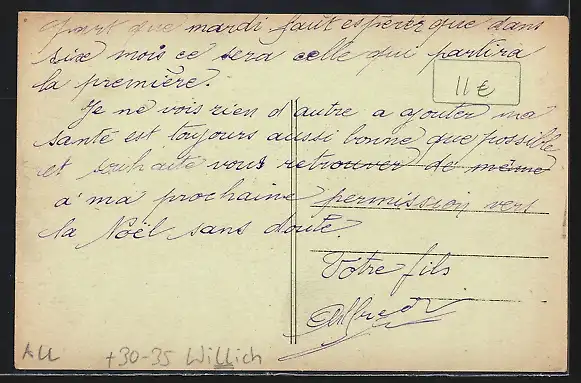 part que mardi faut espérer que dans
six mois ce sera celle qui partira
la première.
11 €
Je ne vois rien d'autre a ajouter ma
santé est toujours aussi bonne que possible
et souhaite vous retrouver de même
a ma prochaine permission vers
la Noël sans doute.
Votre fils
Alfred
All +30-35 Willich